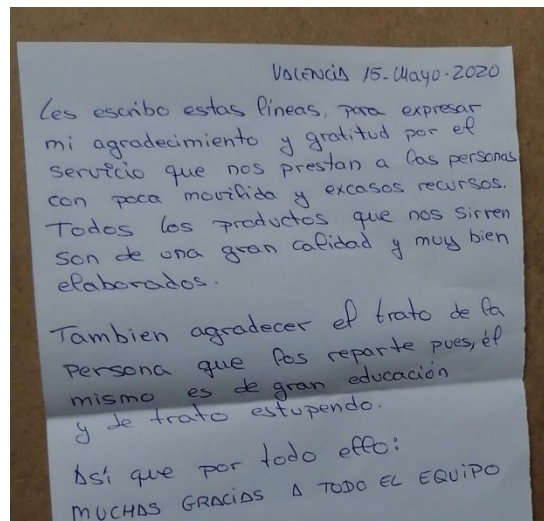 VALENCIA 15-Mayo-2020
Les escribo estas líneas, para expresar
mi agradecimiento y gratitud por el
servicio que nos prestan a las personas
con poca movilida y excasos recursos.
Todos los productos que nos sirven
son de una gran calidad y muy bien
elaborados.
Tambien agradecer el trato de la
persona que los reparte pues, él
mismo es de gran educación
y de trato estupendo.
Así que por todo ello:
MUCHAS GRACIAS A TODO EL EQUIPO